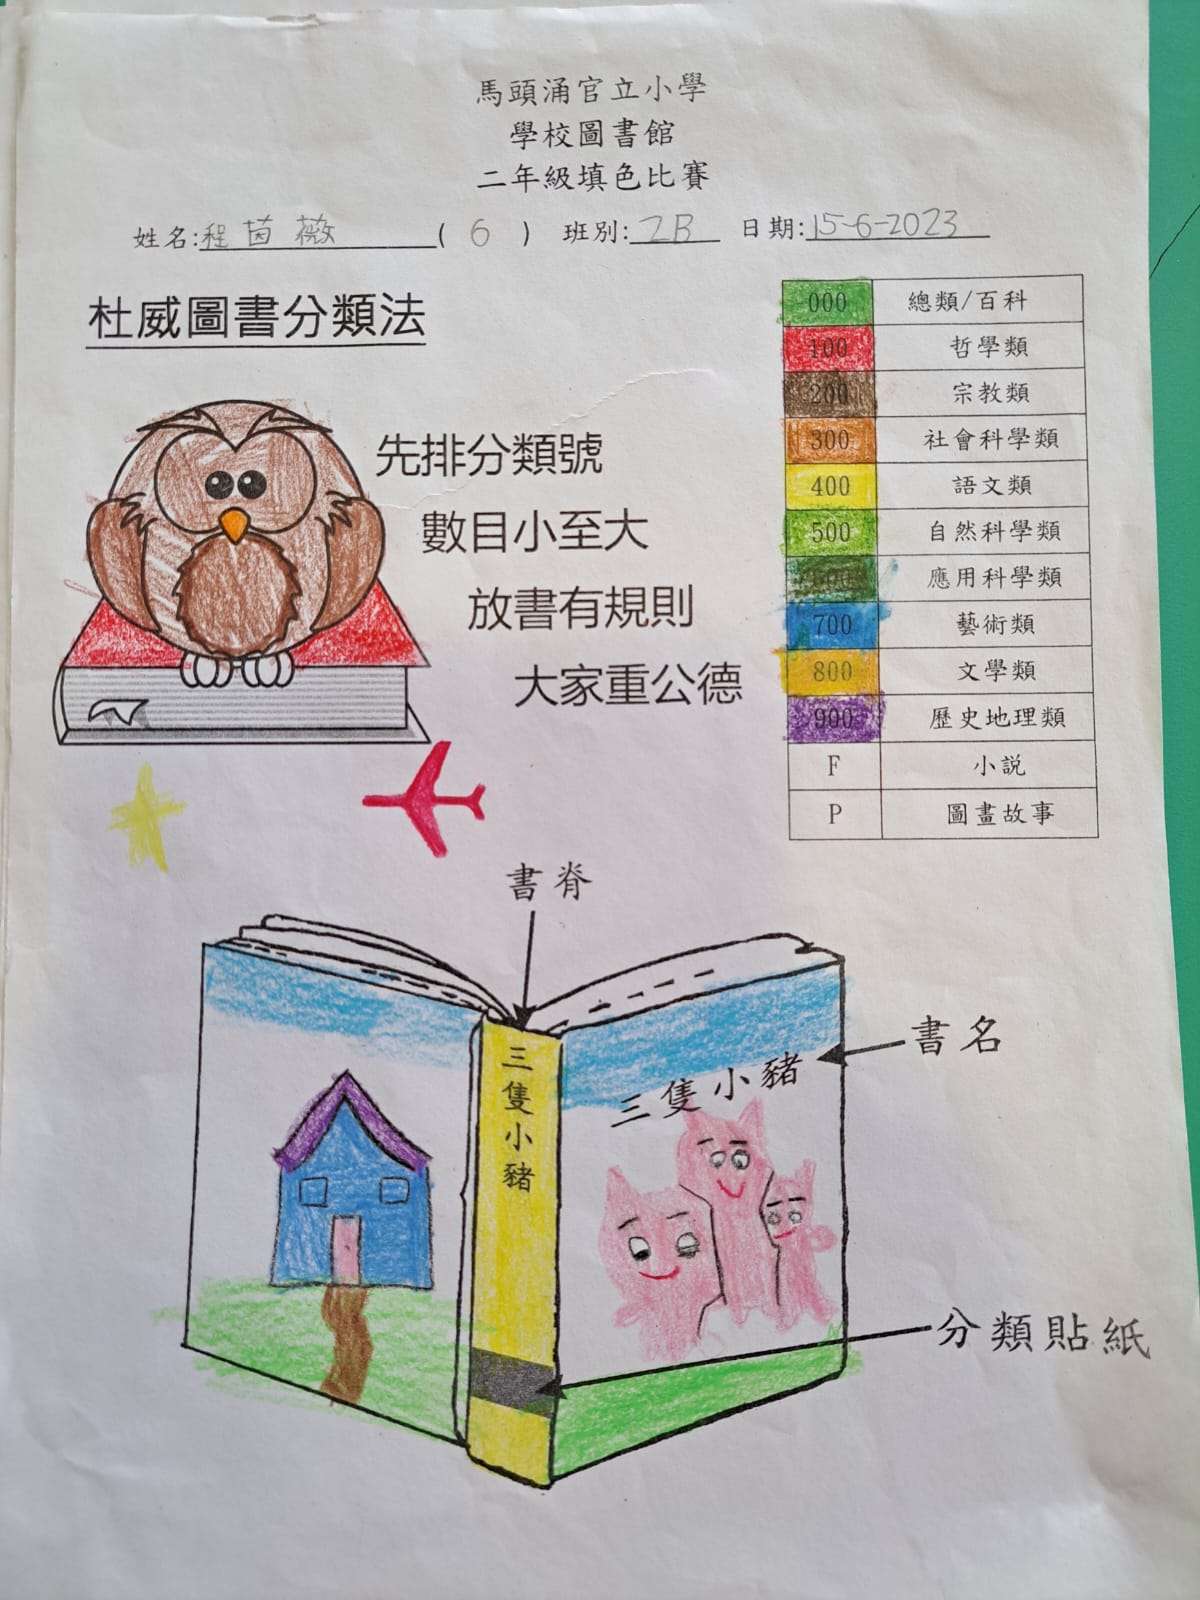 馬頭涌官立小學
學校圖書館
二年級填色比賽
姓名:程茵薇( 6 ) 班別:2B 日期:15-6-2023
杜威圖書分類法
先排分類號
數目小至大
放書有規則
大家重公德
000 總類/百科
100 哲學類
200 宗教類
300 社會科學類
400 語文類
500 自然科學類
600 應用科學類
700 藝術類
800 文學類
900 歷史地理類
F 小說
P 圖畫故事
書脊
書名
三隻小豬
三隻小豬
分類貼紙